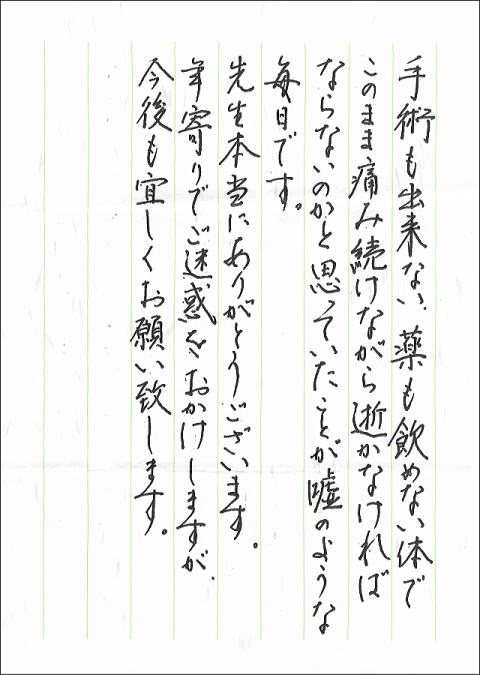 手術も出来ない、薬も飲めない体で
このまま痛み続けながら逝かなければ
ならないのかと思っていたことが嘘のような
毎日です。
先生本当にありがとうございます。
年寄りでご迷惑をおかけしますが、
今後も宜しくお願い致します。